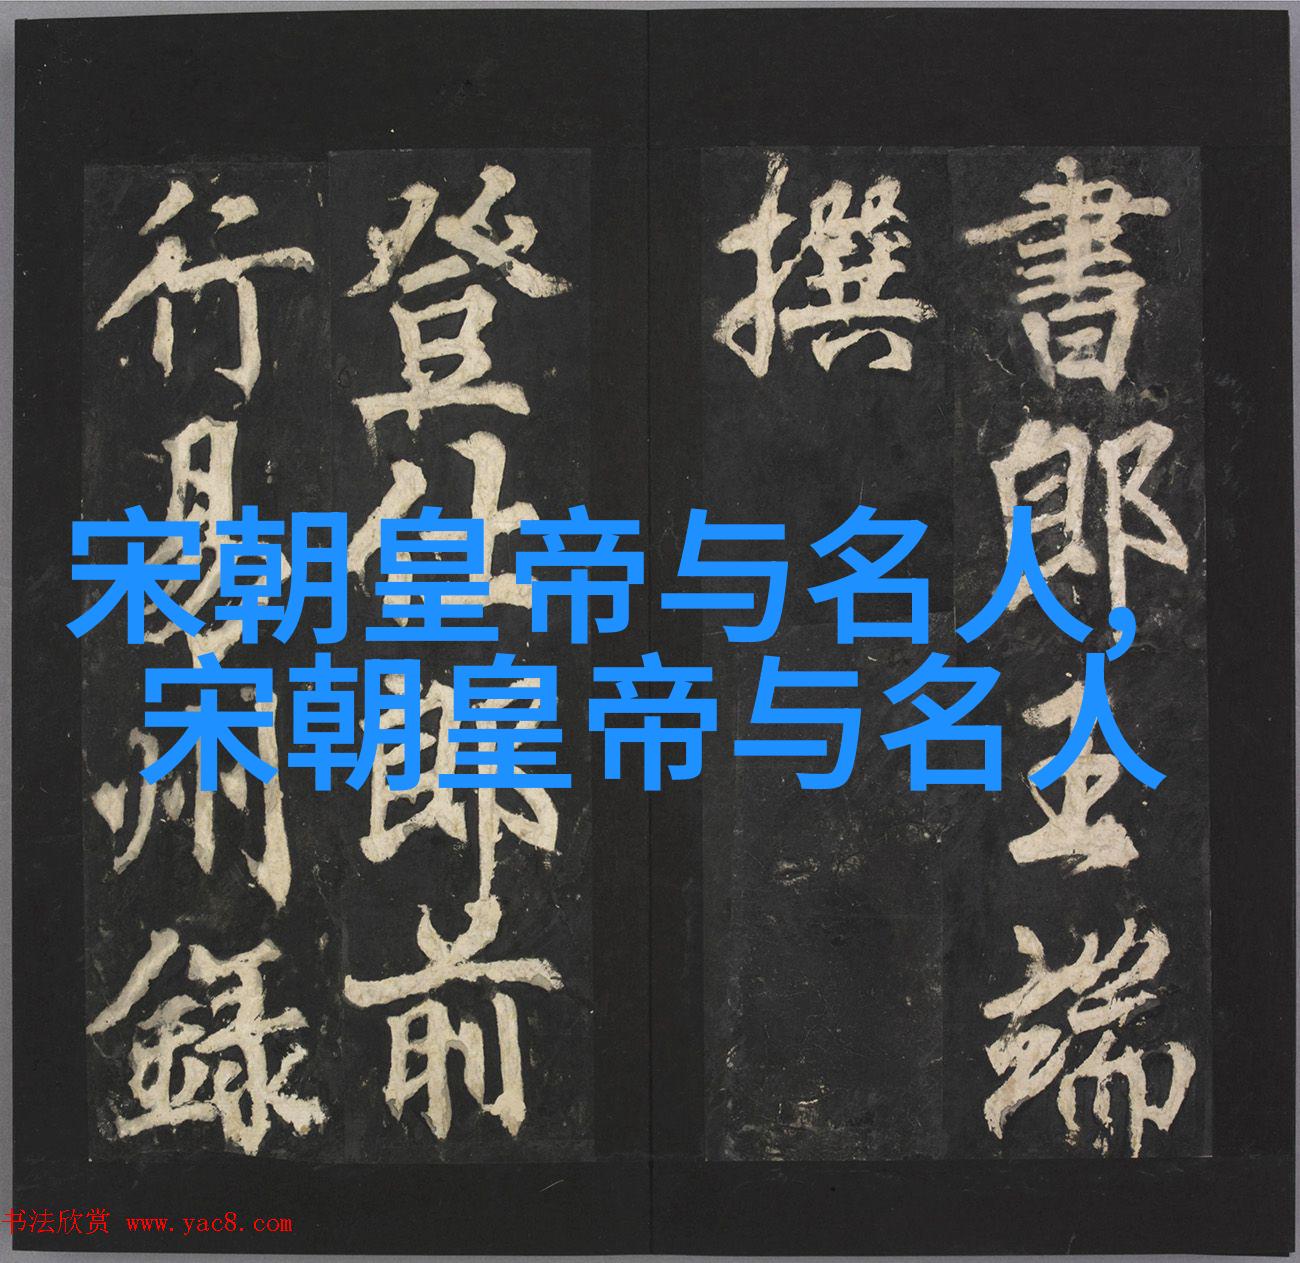 書郎王端
撰
登仕郎前
行易州錄
宋朝皇帝与名人,
宋朝皇帝与名人
书法欣赏 www.yac8.com